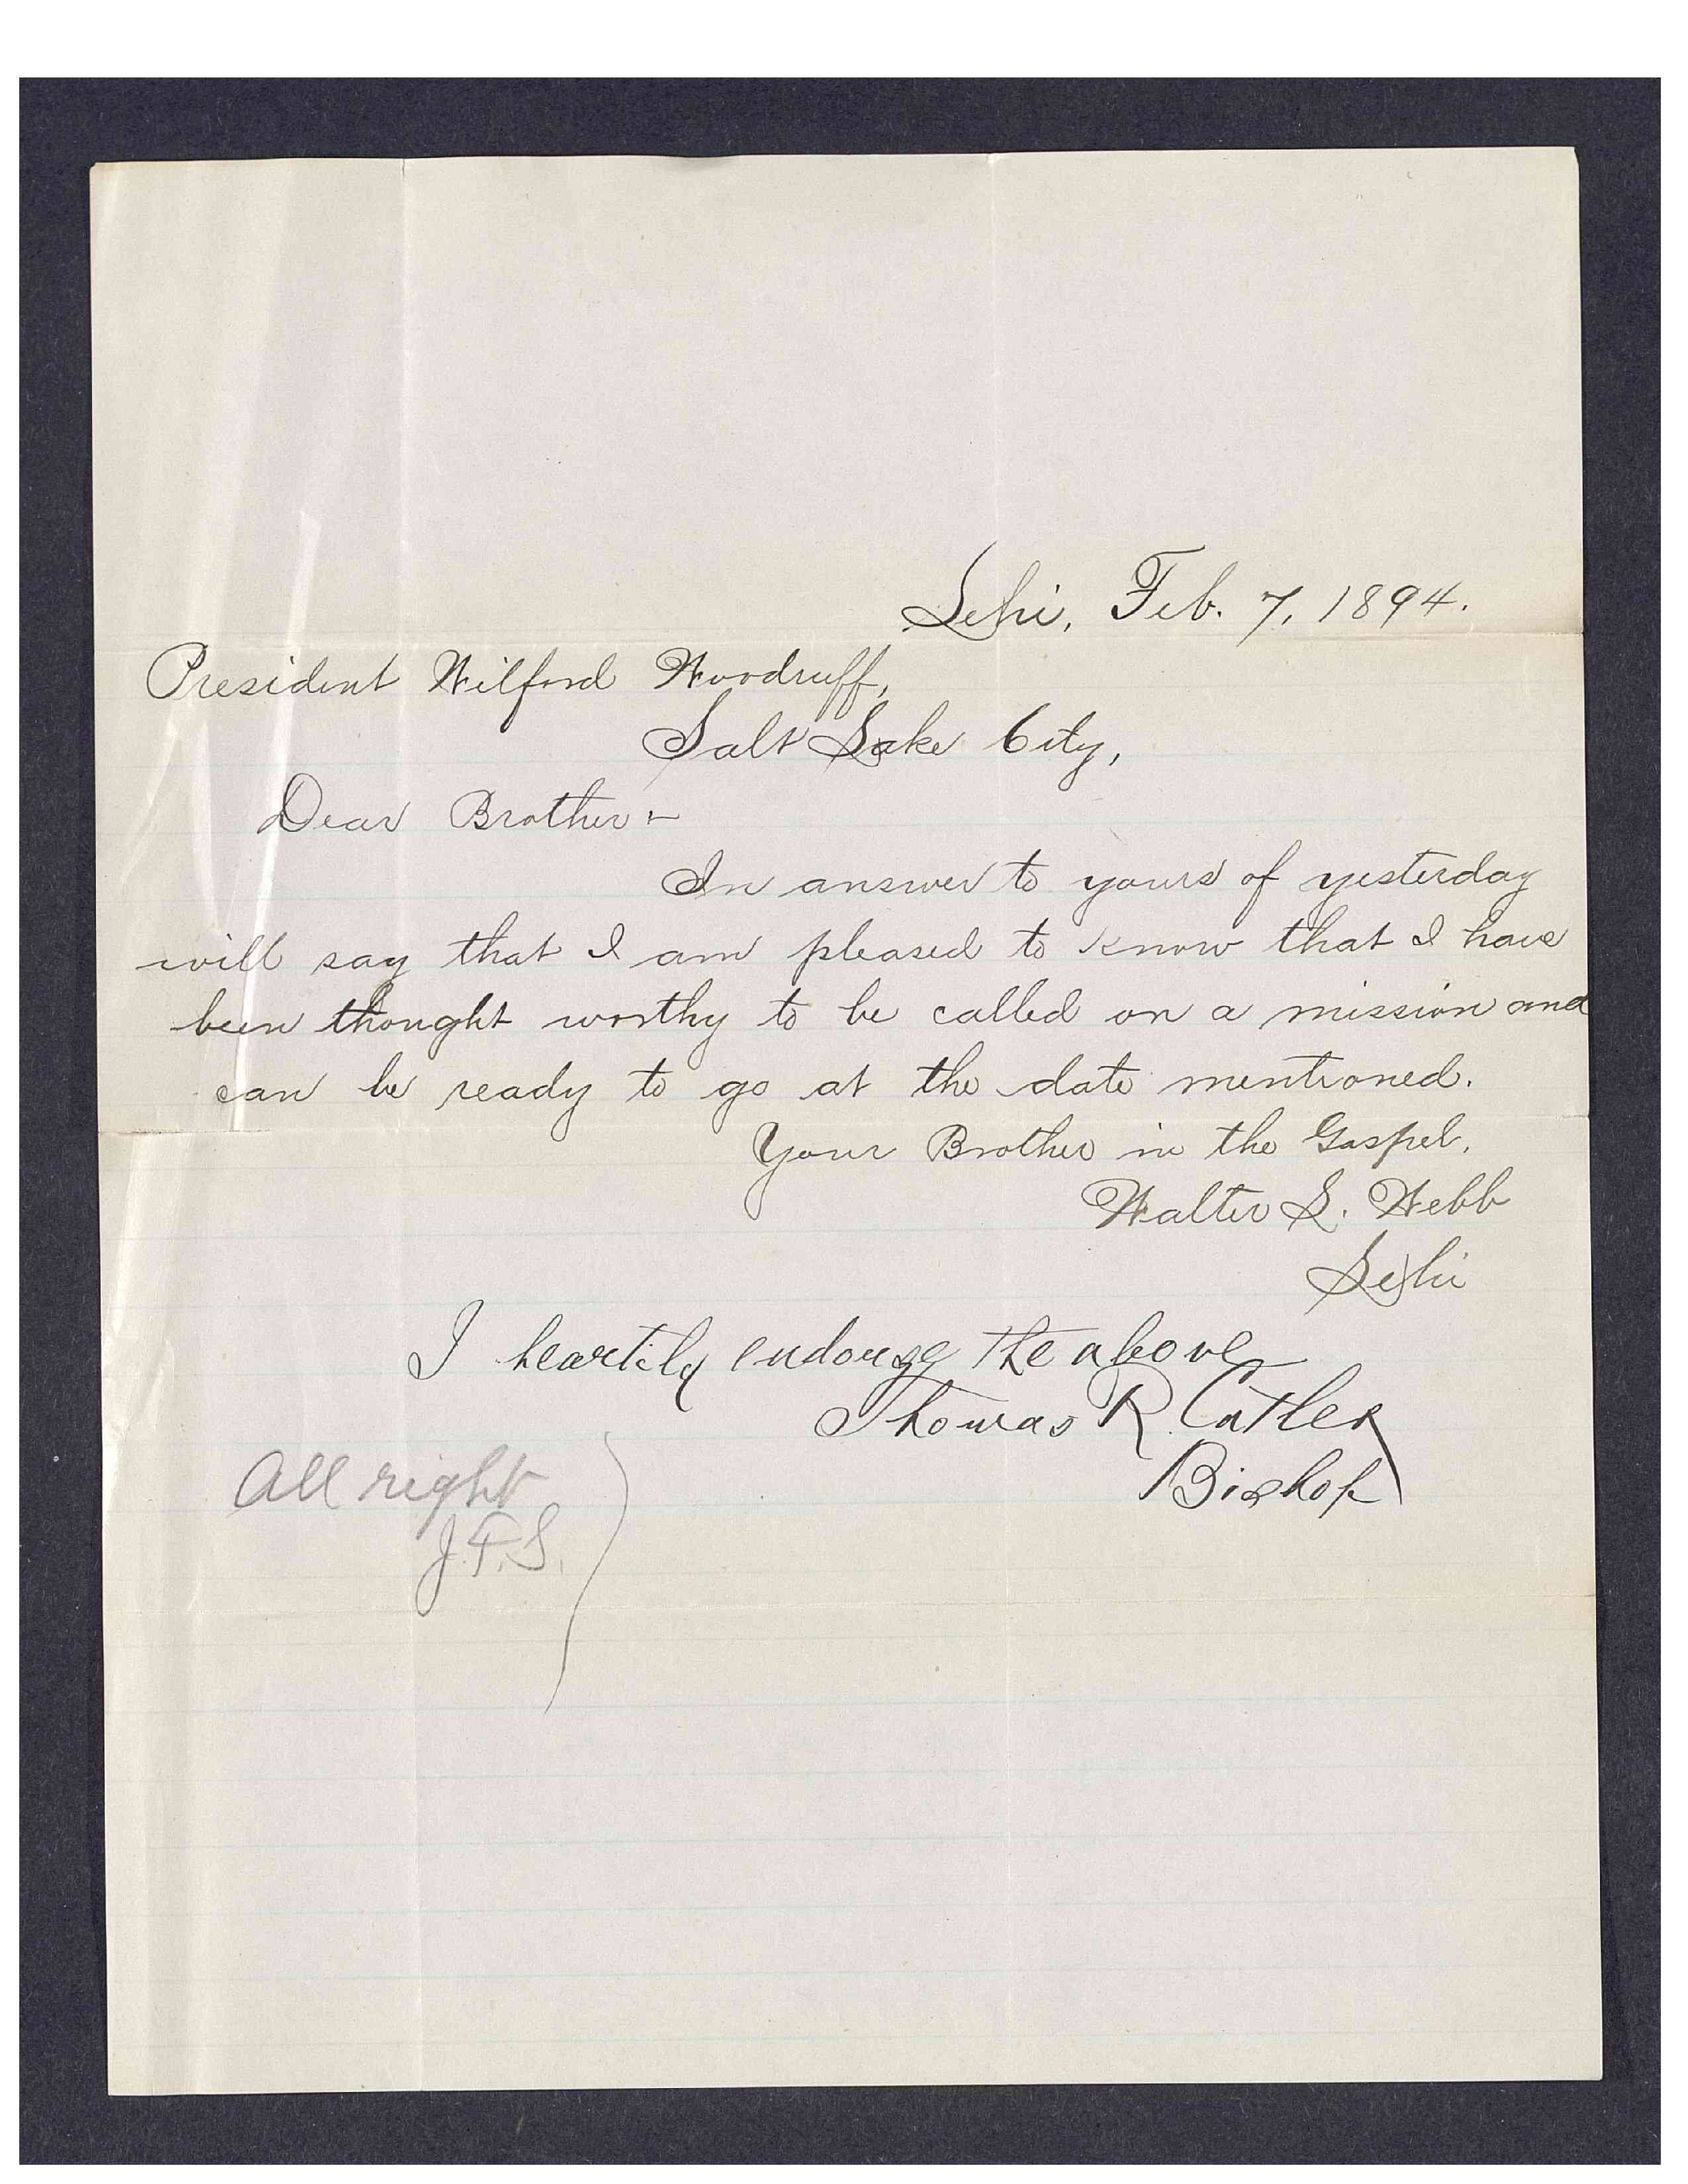 Lehi, Feb. 7, 1894.
President Wilford Woodruff,
Salt Lake City,
Dear Brother:-
In answer to yours of yesterday
will say that I am pleased to know that I have
been thought worthy to be called on a mission and
can be ready to go at the date mentioned.
Your Brother in the Gospel.
Walter L. Webb
Lehi
I heartily endorse the above
Thomas R. Cutler
Bishop
All right
J.F.S.